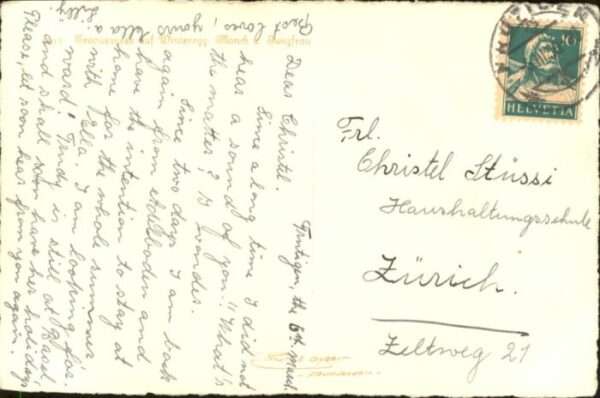 Frutigen, the 6th March.
Dear Christel.
Since a long time I did not
hear a sound of you!! What's
the matter? I wonder.
Since two days I am back
again from Adelboden and
have the intention to stay at
home for the whole summer
with Ella. I am looking for-
ward! Trudy is still at Basel,
and shall soon have her holidays
Please, let soon hear from you again.
Best loves, yours Ella a.
Lilly.
Mönch u. Jungfrau
HELVETIA
10
Frl.
Christel Stüssi
Haushaltungsschule
Zürich.
Zeltweg 21